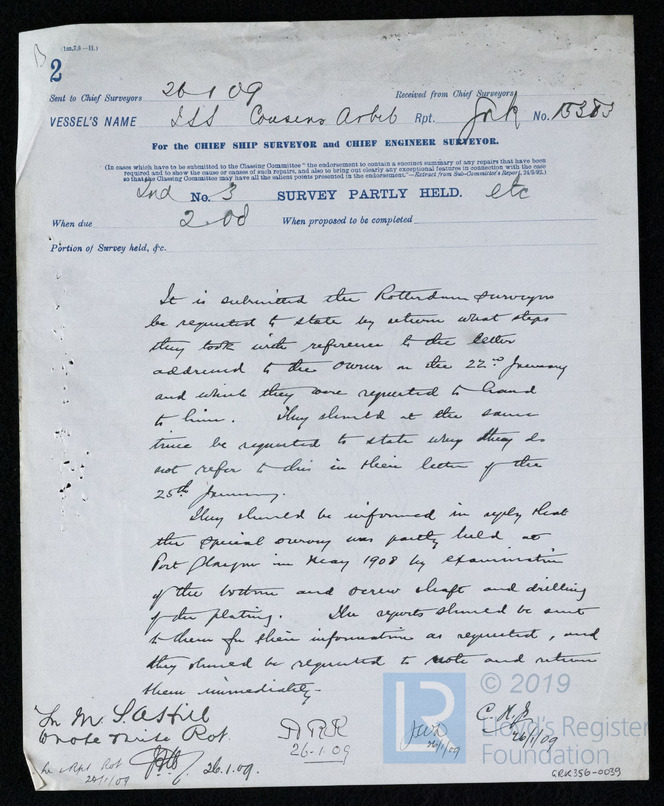 (1m,7,8—H.)
2
Sent to Chief Surveyors 26-1-09 Received from Chief Surveyors
VESSEL'S NAME ISS Cousins Arbib Rpt. Grk No. 15383
For the CHIEF SHIP SURVEYOR and CHIEF ENGINEER SURVEYOR.
(In cases which have to be submitted to the Classing Committee "the endorsement to contain a succinct summary of any repairs that have been
required and to show the cause or causes of such repairs, and also to bring out clearly any exceptional features in connection with the case
so that the Classing Committee may have all the salient points presented in the endorsement."—Extract from Sub-Committee's Report, 24/9/92.)
2nd No. 3 SURVEY PARTLY HELD. etc
When due 2.08 When proposed to be completed
Portion of Survey held, &c.
It is submitted the Rotterdam Surveyors
be requested to state by return what steps
they took with reference to the letter
addressed to the Owner on the 22nd January
and which they were requested to hand
to him. They should at the same
time be requested to state why they do
not refer to this in their letter of the
25th January.
They should be informed in reply that
the special survey was partly held at
Port Glasgow in May 1908 by examination
of the bottom and screw shaft and drilling
of the plating. The reports should be sent
to them for their information as requested, and
they should be requested to note and return
them immediately.
Wrote Rot.
26-1-09
26/1/09
26/1/09
Rpt Rot
26/1/09
26.1.09.
© 2019
LR
Lloyd's Register
Foundation
GRK356-0039